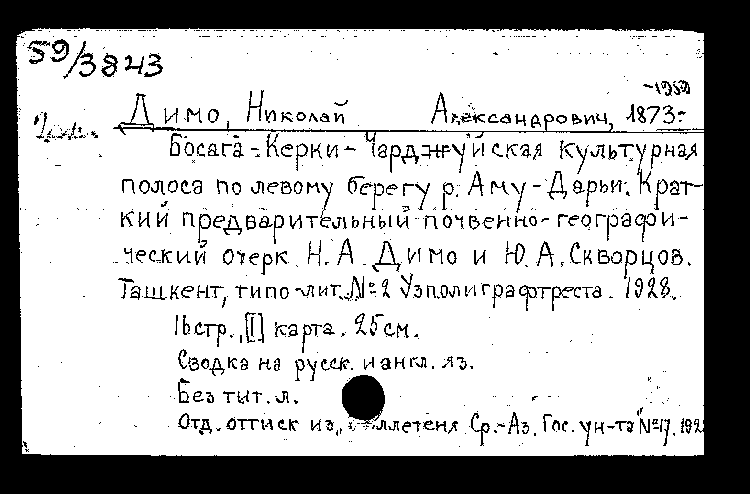 59/3843
-1959
Димо, Николай Александрович, 1873-
Босага-Керки-Чарджуйская культурная
полоса по левому берегу р. Аму-Дарьи. Крат-
кий предварительный почвенно-географи-
ческий очерк Н. А. Димо и Ю. А. Скворцов.
Ташкент, типо-лит. №2 Узполиграфтреста. 1928.
16 стр., [1] карта. 25 см.
Сводка на русск. и англ. яз.
Без тит. л.
Отд. оттиск из Ср.-Аз. Гос. ун-та" №17, 192